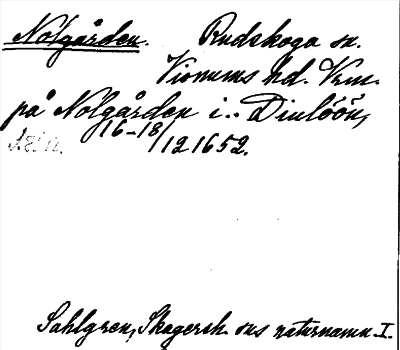 Nolgården. Rudskoga sn.
Visnums hd. Vrm.
på Nolgården i .. Diulöön,
16-18/12 1652.
Sahlgren, Skagersh. sns naturnamn I.